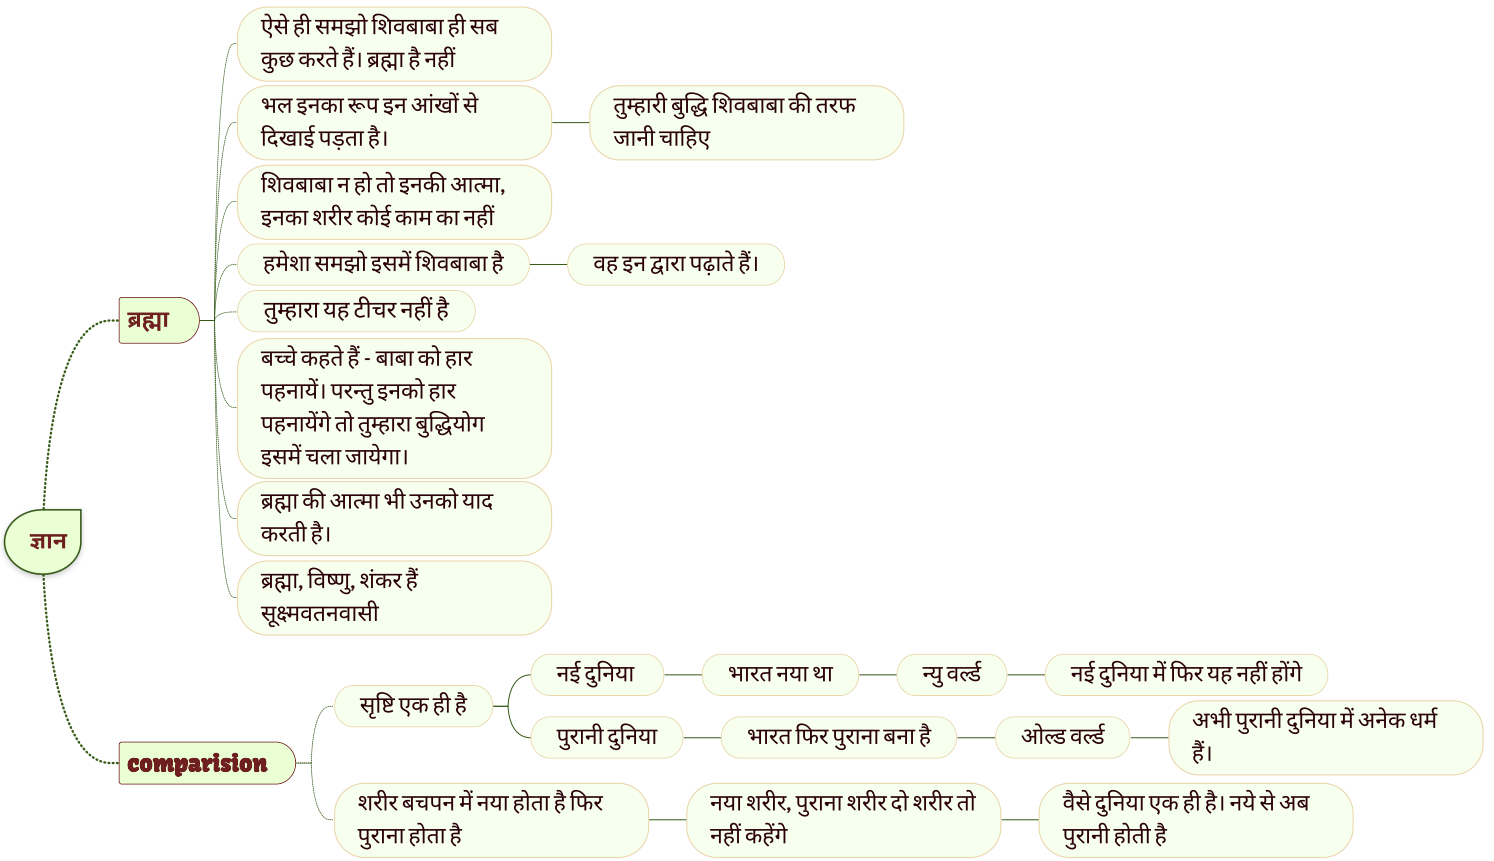 ऐसे ही समझो शिवबाबा ही सब
कुछ करते हैं। ब्रह्मा है नहीं
भल इनका रूप इन आंखों से
दिखाई पड़ता है।
तुम्हारी बुद्धि शिवबाबा की तरफ
जानी चाहिए
शिवबाबा न हो तो इनकी आत्मा,
इनका शरीर कोई काम का नहीं
हमेशा समझो इसमें शिवबाबा है
वह इन द्वारा पढ़ाते हैं।
तुम्हारा यह टीचर नहीं है
ब्रह्मा
बच्चे कहते हैं - बाबा को हार
पहनायें। परन्तु इनको हार
पहनायेंगे तो तुम्हारा बुद्धियोग
इसमें चला जायेगा।
ब्रह्मा की आत्मा भी उनको याद
करती है।
ज्ञान
ब्रह्मा, विष्णु, शंकर हैं
सूक्ष्मवतनवासी
नई दुनिया
भारत नया था
न्यु वर्ल्ड
नई दुनिया में फिर यह नहीं होंगे
सृष्टि एक ही है
पुरानी दुनिया
भारत फिर पुराना बना है
ओल्ड वर्ल्ड
अभी पुरानी दुनिया में अनेक धर्म
हैं।
comparision
शरीर बचपन में नया होता है फिर
पुराना होता है
नया शरीर, पुराना शरीर दो शरीर तो
नहीं कहेंगे
वैसे दुनिया एक ही है। नये से अब
पुरानी होती है